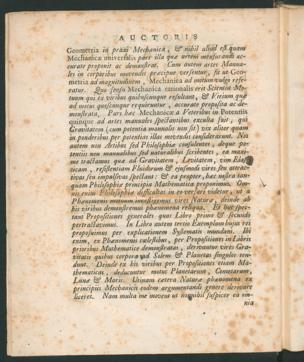 AUCTORIS
Geometria in praxi Mechanica, & nihil aliud est quam
Mechanicæ universalis pars illa quæ artem mensurandi ac-
curate proponit ac demonstrat. Cum autem artes Manua-
les in corporibus movendis præcipue versentur, fit ut Geo-
metria ad magnitudinem, Mechanica ad motum vulgo refe-
ratur. Quo sensu Mechanica rationalis erit Scientia Mo-
tuum qui ex viribus quibuscunque resultant, & Virium quæ
ad motus quoscunque requiruntur, accurate proposita ac de-
monstrata. Pars hæc Mechanicæ a Veteribus in Potentiis
quinque ad artes manuales spectantibus exculta fuit, qui
Gravitatem (cum potentia manualis non sit) vix aliter quam
in ponderibus per potentias illas movendis considerarunt. Nos
autem non Artibus sed Philosophiæ consulentes, deque po-
tentiis non manualibus sed naturalibus scribentes, ea maxi-
me tractamus quæ ad Gravitatem, Levitatem, vim Elas-
ticam, resistentiam Fluidorum & ejusmodi vires seu attrac-
tivas seu impulsivas spectant: Et ea propter, hæc nostra tan-
quam Philosophiæ principia Mathematica proponimus. Om-
nis enim Philosophiæ difficultas in eo versari videtur, ut a
Phænomenis motuum investigemus vires Naturæ, deinde ab
his viribus demonstremus phænomena reliqua. Et huc spec-
tant Propositiones generales quas Libro primo & secundo
pertractavimus. In Libro autem tertio Exemplum hujus rei
proposuimus per explicationem Systematis mundani. Ibi
enim, ex Phænomenis cælestibus, per Propositiones in Libris
prioribus Mathematice demonstratas, derivantur vires Gra-
vitatis quibus corpora ad Solem & Planetas singulos ten-
dunt. Deinde ex his viribus per Propositiones etiam Ma-
thematicas, deducuntur motus Planetarum, Cometarum,
Lunæ & Maris. Utinam cætera Naturæ phænomena ex
principiis Mechanicis eodem argumentandi genere derivare
liceret. Nam multa me movent ut nonnihil suspicer ea om-
nia